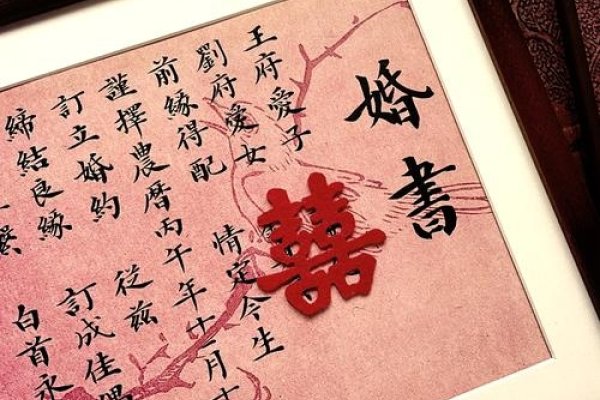 婚書
王府愛子
劉府愛女
囍
前緣得配 情定今生
謹擇農曆丙午年十一月十
訂立婚約 從茲
締結良緣 訂成佳偶
白首永